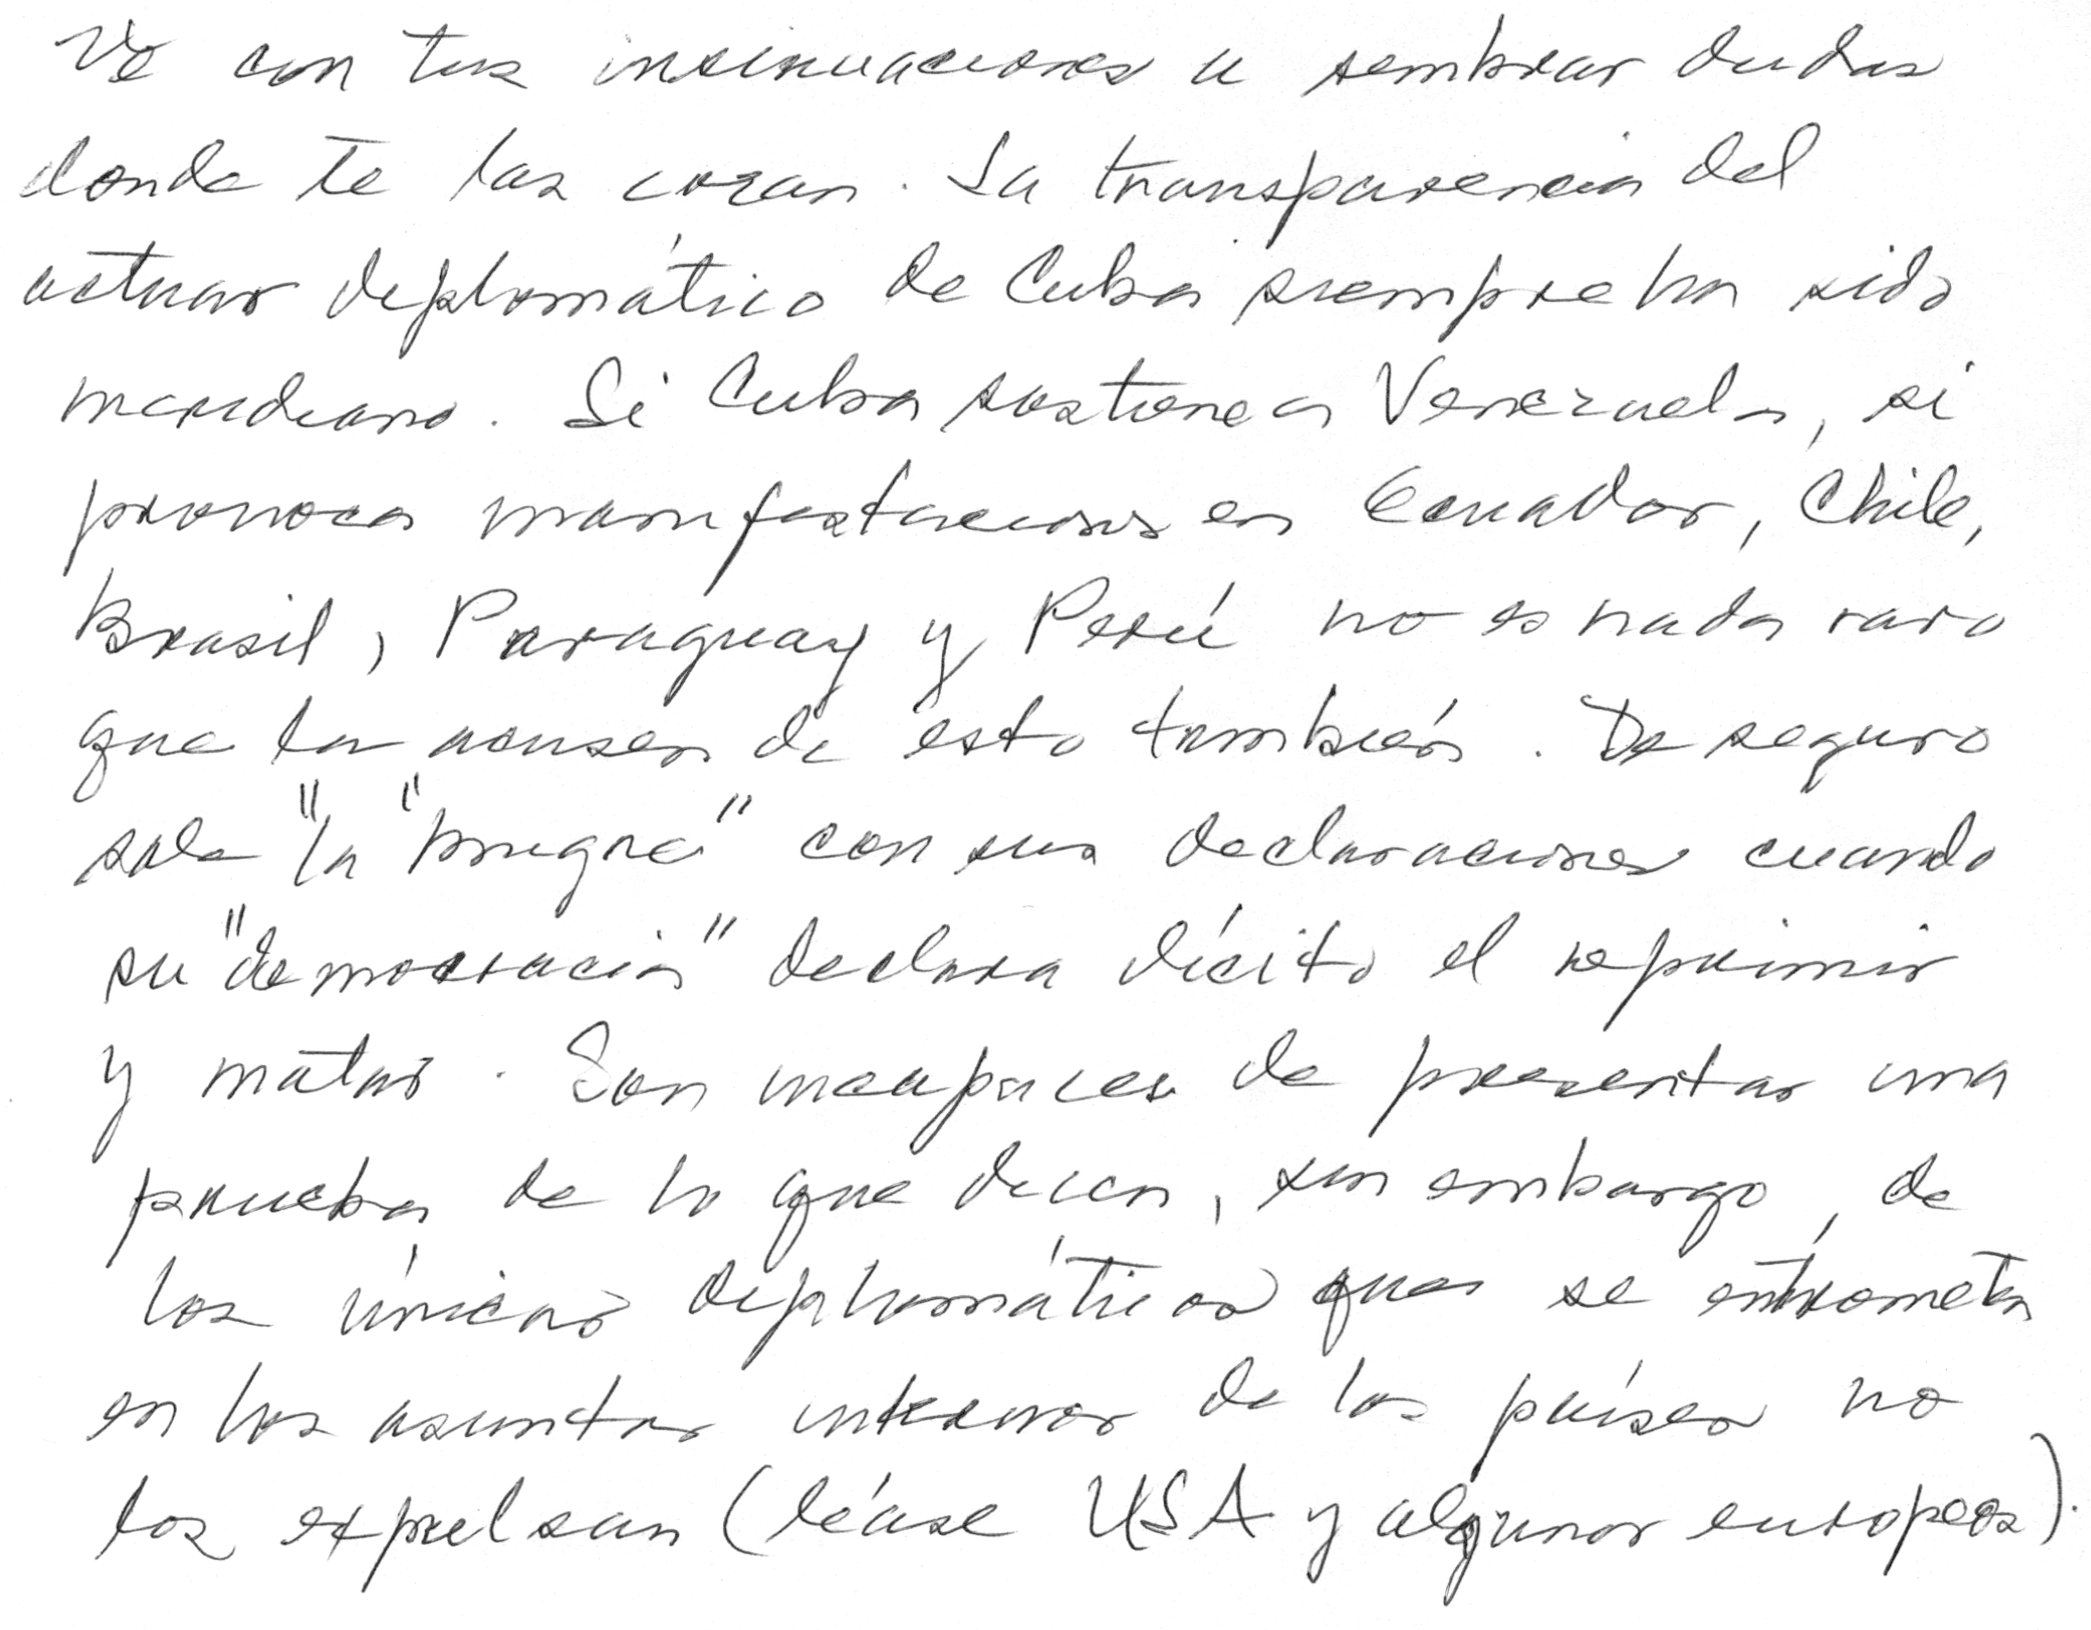 Ve con tus insinuaciones a sembrar dudas
donde te las cozan. La transparencia del
actuar diplomático de Cuba siempre ha sido
meridiano. Si Cuba sostiene a Venezuela, si
provoca manifestaciones en Ecuador, Chile,
Brasil, Paraguay y Perú no es nada raro
que la acusen de esto también. De seguro
sale "la" con sus declaraciones cuando
su "democracia" declara lícito el reprimir
y matar. Son incapaces de presentar una
prueba de lo que dicen, sin embargo, de
los únicos diplomáticos que se entrometen
en los asuntos internos de los países no
los expulsan (léase USA y algunos europeos).